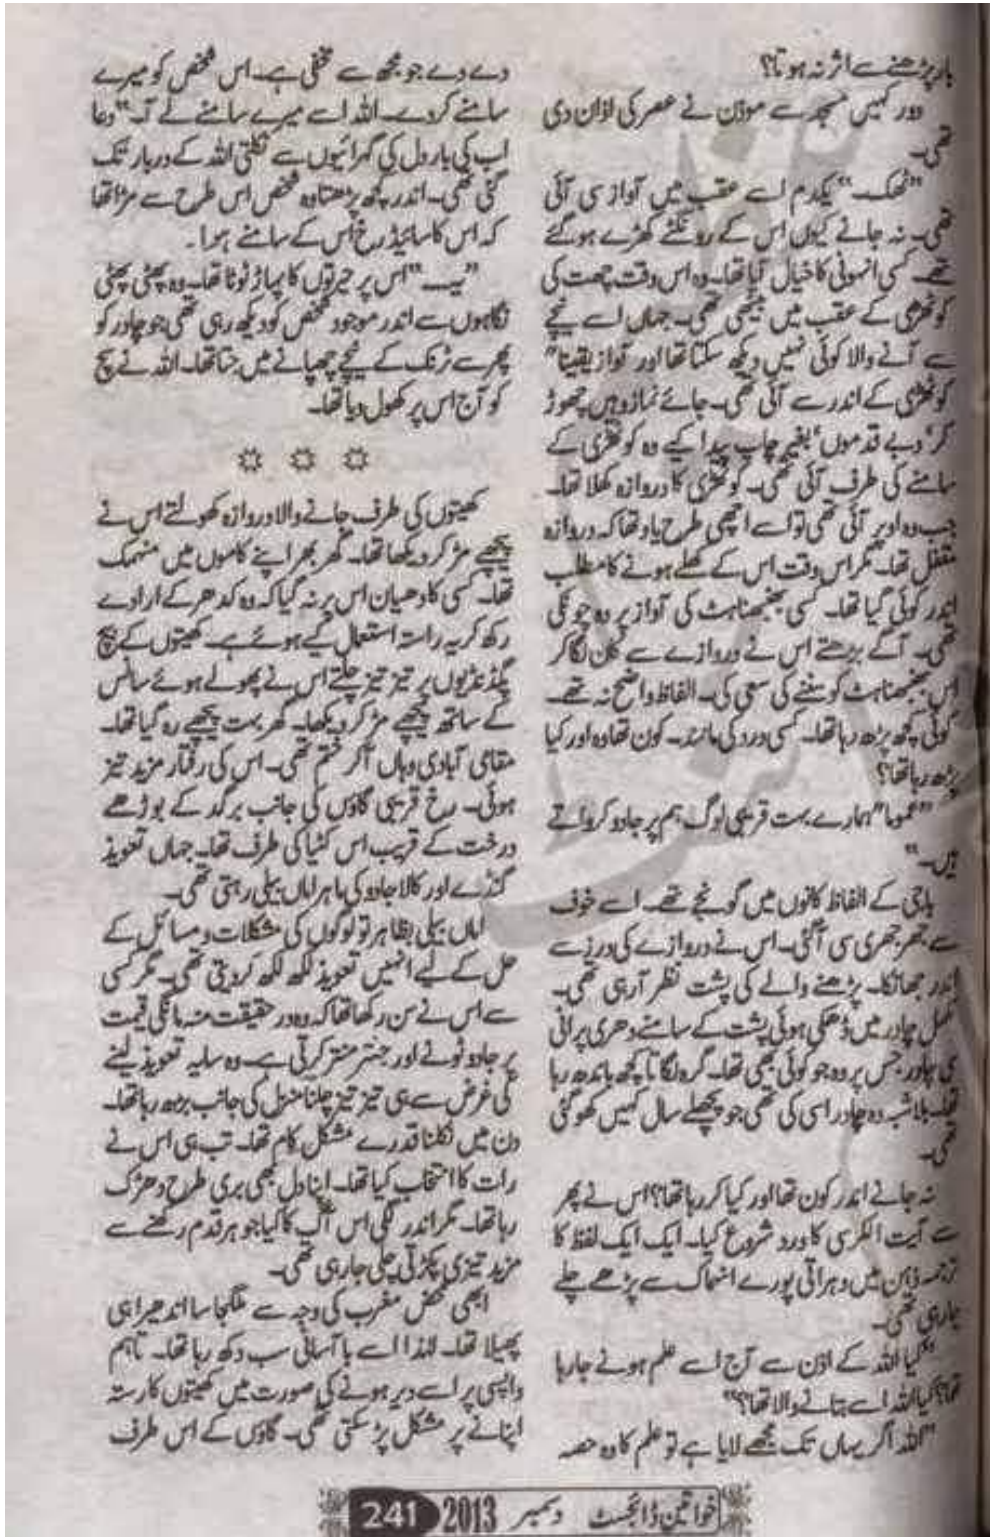 بار پڑھنے سے اثر نہ ہوتا؟
دور کہیں مسجد سے موذن نے عصر کی اذان دی
تھی۔
"ٹھک۔" یکدم اسے عقب میں آواز سی آئی
تھی۔ نہ جانے کیوں اس کے رونگٹے کھڑے ہوگئے
تھے۔ کسی انہونی کا خیال آیا تھا۔ وہ اس وقت چھت کی
کوٹھڑی کے عقب میں بیٹھی تھی۔ جہاں اسے نیچے
سے آنے والا کوئی نہیں دیکھ سکتا تھا اور آواز یقینا"
کوٹھڑی کے اندر سے آئی تھی۔ جائے نماز وہیں چھوڑ
کر' دبے قدموں' بغیر چاپ پیدا کیے وہ کوٹھڑی کے
سامنے کی طرف آئی تھی۔ کوٹھڑی کا دروازہ کھلا تھا۔
جب وہ اوپر آئی تھی تو اسے اچھی طرح یاد تھا کہ دروازہ
مقفل تھا۔ مگر اس وقت اس کے کھلے ہونے کا مطلب
اندر کوئی گیا تھا۔ کسی بھنبھناہٹ کی آواز پر وہ چونکی
تھی۔ آگے بڑھتے اس نے دروازے سے کان لگا کر
اس بھنبھناہٹ کو سننے کی سعی کی۔ الفاظ واضح نہ تھے۔
کوئی کچھ پڑھ رہا تھا۔ کسی ورد کی مانند۔ کون تھا وہ اور کیا
پڑھ رہا تھا؟
"عموما" ہمارے بہت قریبی لوگ ہم پر جادو کرواتے
ہیں۔"
باجی کے الفاظ کانوں میں گونجے تھے۔ اسے خوف
سے جھرجھری سی آگئی۔ اس نے دروازے کی درز سے
اندر جھانکا۔ پڑھنے والے کی پشت نظر آرہی تھی۔
مکمل چادر میں ڈھکی ہوئی پشت کے سامنے دھری پرانی
سی چادر جس پر وہ جو کوئی بھی تھا۔ گرہ لگاتا کچھ باندھ رہا
تھا۔ بلاشبہ وہ چادر اسی کی تھی جو پچھلے سال کہیں کھو گئی
تھی۔
نہ جانے اندر کون تھا اور کیا کر رہا تھا؟ اس نے پھر
سے آیت الکرسی کا ورد شروع کیا۔ ایک ایک لفظ کا
ترجمہ ذہن میں دہراتی پورے انہماک سے پڑھے چلے
جارہی تھی۔
"کیا اللہ کے اذن سے آج اسے علم ہونے جارہا
تھا؟ کیا اللہ اسے بتانے والا تھا؟"
"اللہ اگر یہاں تک مجھے لایا ہے تو علم کا وہ حصہ
دے دے جو مجھ سے مخفی ہے۔ اس شخص کو میرے
سامنے کردے۔ اللہ اسے میرے سامنے لے آ۔" دعا
اب کی بار دل کی گہرائیوں سے نکلتی اللہ کے دربار تک
گئی تھی۔ اندر کچھ پڑھتا وہ شخص اس طرح سے مڑا تھا
کہ اس کا سائیڈ رخ اس کے سامنے ہوا۔
"یہ۔" اس پر حیرتوں کا پہاڑ ٹوٹا تھا۔ وہ پھٹی پھٹی
نگاہوں سے اندر موجود شخص کو دیکھ رہی تھی جو چادر کو
پھر سے ٹرنک کے نیچے چھپانے میں جتا تھا۔ اللہ نے سچ
کو آج اس پر کھول دیا تھا۔
☼ ☼ ☼
کھیتوں کی طرف جانے والا دروازہ کھولتے اس نے
پیچھے مڑ کر دیکھا تھا۔ گھر بھر اپنے کاموں میں منہمک
تھا۔ کسی کا دھیان اس پر نہ گیا کہ وہ کدھر کے ارادے
رکھ کر یہ راستہ استعمال کیے ہوئے ہے۔ کھیتوں کے بیچ
پگڈنڈیوں پر تیز تیز چلتے اس نے پھولے ہوئے سانس
کے ساتھ پیچھے مڑ کر دیکھا۔ گھر بہت پیچھے رہ گیا تھا۔
مقامی آبادی وہاں آکر ختم تھی۔ اس کی رفتار مزید تیز
ہوئی۔ رخ قریبی گاؤں کی جانب برگد کے بوڑھے
درخت کے قریب اس کٹیا کی طرف تھا۔ جہاں تعویذ
گنڈے اور کالا جادو کی ماہر اماں بیلی رہتی تھی۔
اماں بیلی بظاہر تو لوگوں کی مشکلات و مسائل کے
حل کے لیے انہیں تعویذ لکھ لکھ کر دیتی تھی۔ مگر کسی
سے اس نے سن رکھا تھا کہ وہ در حقیقت منہ مانگی قیمت
پر جادو ٹونے اور جنتر منتر کرتی ہے۔ وہ سایہ تعویذ لینے
کی غرض سے ہی تیز تیز چلتا منزل کی جانب بڑھ رہا تھا۔
دن میں نکلنا قدرے مشکل کام تھا۔ تب ہی اس نے
رات کا انتخاب کیا تھا۔ اپنا دل بھی بری طرح دھڑک
رہا تھا۔ مگر اندر لگی اس آگ کا کیا جو ہر قدم رکھنے سے
مزید تیزی پکڑتی چلی جارہی تھی۔
ابھی محض مغرب کی وجہ سے ملگجا سا اندھیرا ہی
پھیلا تھا۔ لہٰذا اسے با آسانی سب دکھ رہا تھا۔ تاہم
واپسی پر اسے دیر ہونے کی صورت میں کھیتوں کا رستہ
اپنانے پر مشکل پڑ سکتی تھی۔ گاؤں کے اس طرف
خواتین ڈائجسٹ دسمبر 2013 241